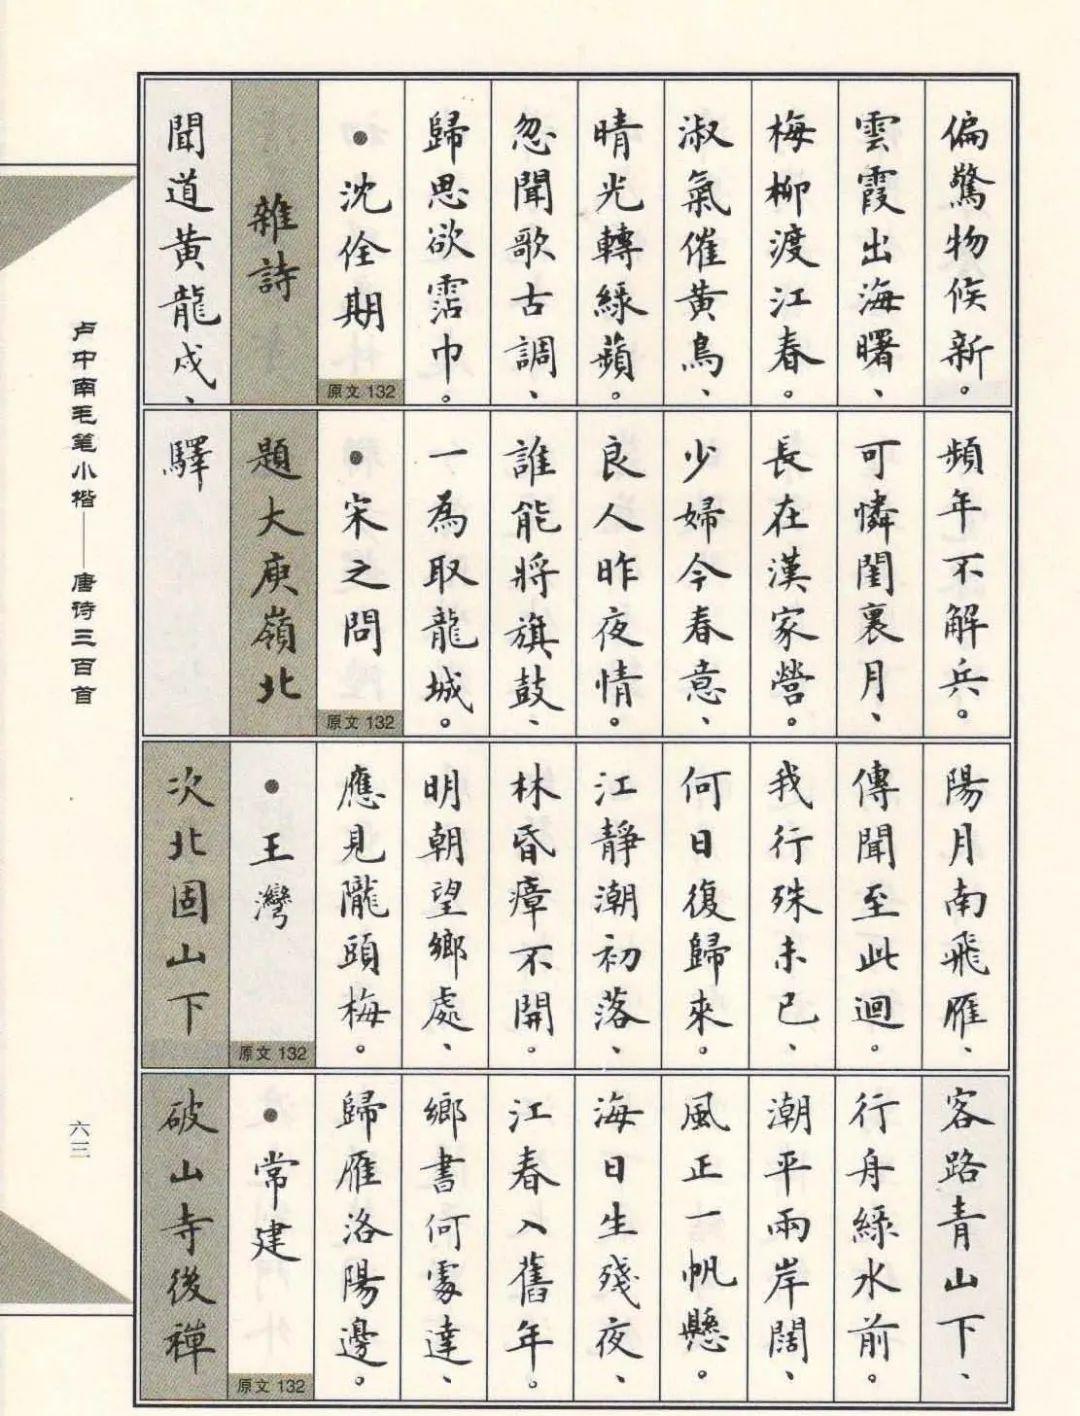 偏驚物候新。
雲霞出海曙、
梅柳渡江春。
淑氣催黄鳥、
晴光轉綠蘋。
忽聞歌古調、
歸思欲霑巾。
●沈佺期
原文 132
雜詩
聞道黄龍戍、
頻年不解兵。
可憐閨裏月、
長在漢家營。
少婦今春意、
良人昨夜情。
誰能將旗鼓、
一為取龍城。
●宋之問
原文 132
題大庾嶺北
驛
陽月南飛雁、
傳聞至此迴。
我行殊未已、
何日復歸來。
江靜潮初落、
林昏瘴不開。
明朝望鄉處、
應見隴頭梅。
●王灣
原文 132
次北固山下
客路青山下、
行舟綠水前。
潮平兩岸闊、
風正一帆懸。
海日生殘夜、
江春入舊年。
鄉書何處達、
歸雁洛陽邊。
●常建
原文 132
破山寺後禪
卢中南毛笔小楷——唐诗三百首
六三